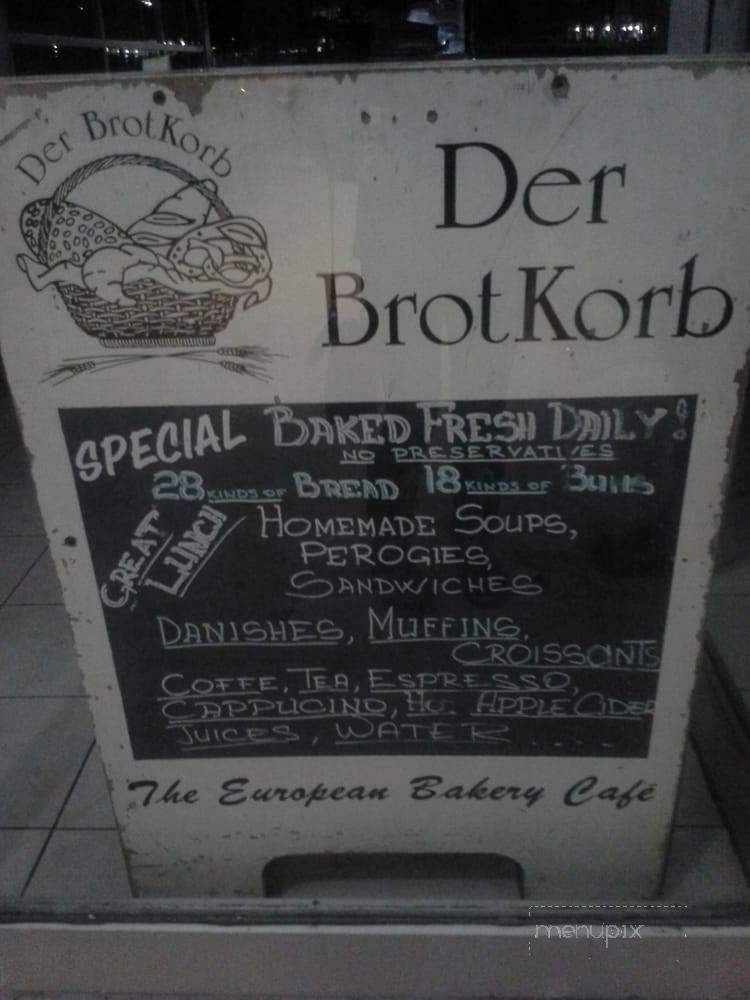 Der BrotKorb
Der
BrotKorb
SPECIAL BAKED FRESH DAILY!
NO PRESERVATIVES
28 KINDS OF BREAD 18 KINDS OF BUNS
GREAT
LUNCH
HOMEMADE SOUPS,
PEROGIES,
SANDWICHES
DANISHES, MUFFINS,
CROISSANTS
COFFE, TEA, ESPRESSO,
CAPPUCINO, APPLE CIDER
JUICES, WATER ....
The European Bakery Café
menupix